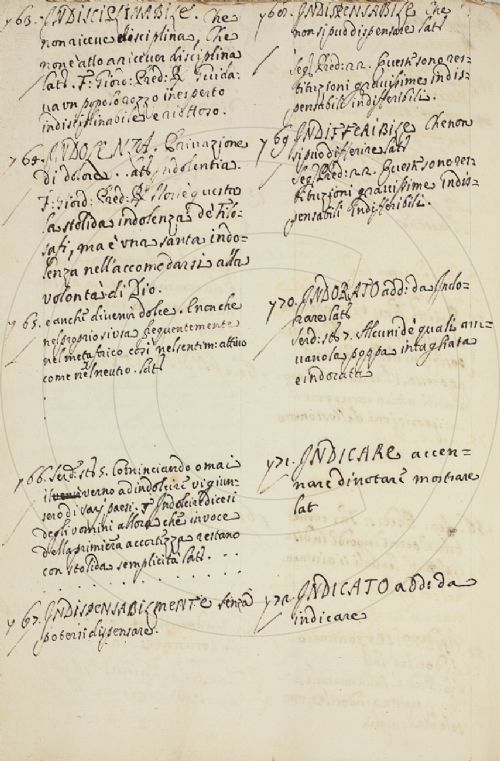 763. INDISCIPLINABILE. Che
non riceve disciplina, Che
non è atto a ricever disciplina
lat:
va un popolo rozzo inesperto
indisciplinabile e riottoso.
764. INDOLENZA. Privazione
di dolore. lat: indolentia.
F: Giord: Pred: R. Non è questa
la stolida indolenza de Filo-
sofi, ma è una santa indo-
lenza nell'accomodarsi alla
volontà di Dio.
765. e anche divenir dolce. E non che
nel proprio si usa frequentemente
nel metaforico così nel sentim: attivo
come nel neutro. lat:
766. Serd: st: 5. Cominciando omai
il verno ad indolcire vi giun-
sero di vari paesi. Indolcire dicesi
degli uomini allora che in vece
della primiera accortizza restano
con stolida semplicità lat:
767. INDISPENSABILMENTE senza
potersi dispensare.
768. INDISPENSABILE Che
non si può dispensare lat:
Seg: Pred: 22. Queste sono res-
tituzioni gravissime indis-
pensabili indifferibili.
769. INDIFFERIBILE Che non
si può differire lat:
Seg: Pred: 22. Queste sono res-
tituzioni gravissime indis-
pensabili indifferibili.
770. INDORATO add: da Indo-
rare lat:
Serd: st: 7. Alcuni de quali
poppa intagliata
e indorata
771. INDICARE accen-
nare dinotare mostrare
lat
772. INDICATO add: da
indicare